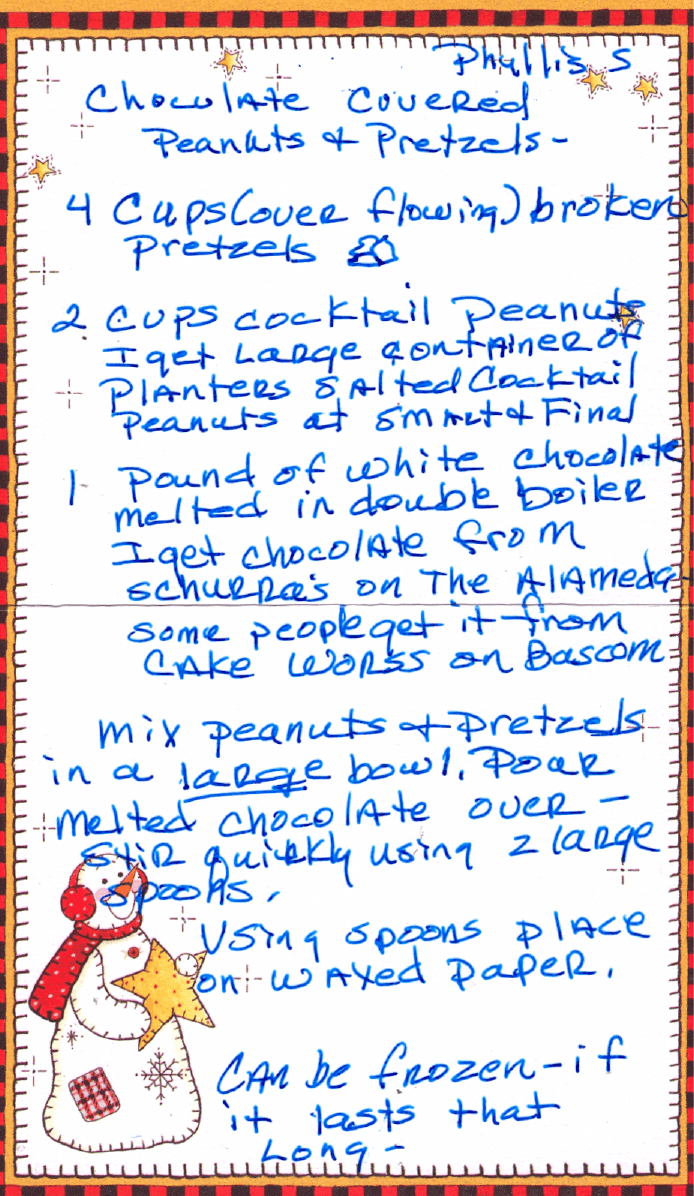 Phyllis S
Chocolate Covered
Peanuts & Pretzels-
4 Cups (over flowing) broken
Pretzels
2 cups cocktail Peanuts
I get Large container of
Planters Salted Cocktail
Peanuts at Smart & Final
1 Pound of white chocolate
melted in double boiler
I get chocolate from
Schurra's on The Alameda
some people get it from
Cake Works on Bascom
Mix peanuts & Pretzels
in a large bowl. Pour
Melted chocolate over -
Stir quickly using 2 large
spoons.
Using spoons place
on waxed paper.
Can be frozen - if
it lasts that
Long -